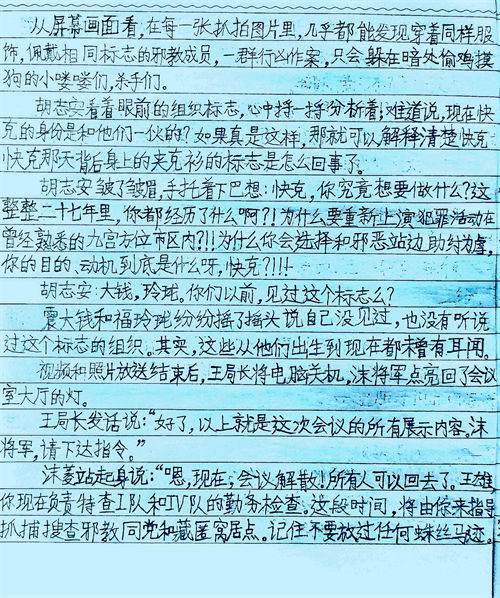 从屏幕画面看,在每一张抓拍图片里,几乎都能发现穿着同样服
饰,佩戴相同标志的邪教成员,一群行凶作案,只会躲在暗处偷鸡摸
狗的小喽喽们,杀手们。
胡志安看着眼前的组织标志,心中捋一捋分析着:难道说,现在快
克的身份是和他们一伙的?如果真是这样,那就可以解释清楚快克
快克那天背后身上的夹克衫的标志是怎么回事了。
胡志安皱了皱眉,手托着下巴想:快克,你究竟想要做什么?这
整整二十七年里,你都经历了什么啊?!为什么要重新上演犯罪活动在
曾经熟悉的九宫方位市区内?!!为什么你会选择和邪恶站边助纣为虐,
你的目的、动机到底是什么呀,快克?!!!
胡志安:大钱,玲珑。你们以前,见过这个标志么?
震大钱和福玲珑纷纷摇了摇头说自己没见过,也没有听说
过这个标志的组织。其实,这些从他们出生到现在都未曾有耳闻。
视频和照片放送结束后,王局长将电脑关机,沫将军点亮回了会议
室大厅的灯。
王局长发话说:“好了,以上就是这次会议的所有展示内容。沫
将军,请下达指令。”
沫菱站起身说:“嗯,现在,会议解散!所有人可以回去了。王雄,
你现在负责特查I队和IV队的勤务检查。这段时间,将由你来指导
抓捕搜查邪教同党和藏匿窝居点。记住不要放过任何蛛丝马迹。